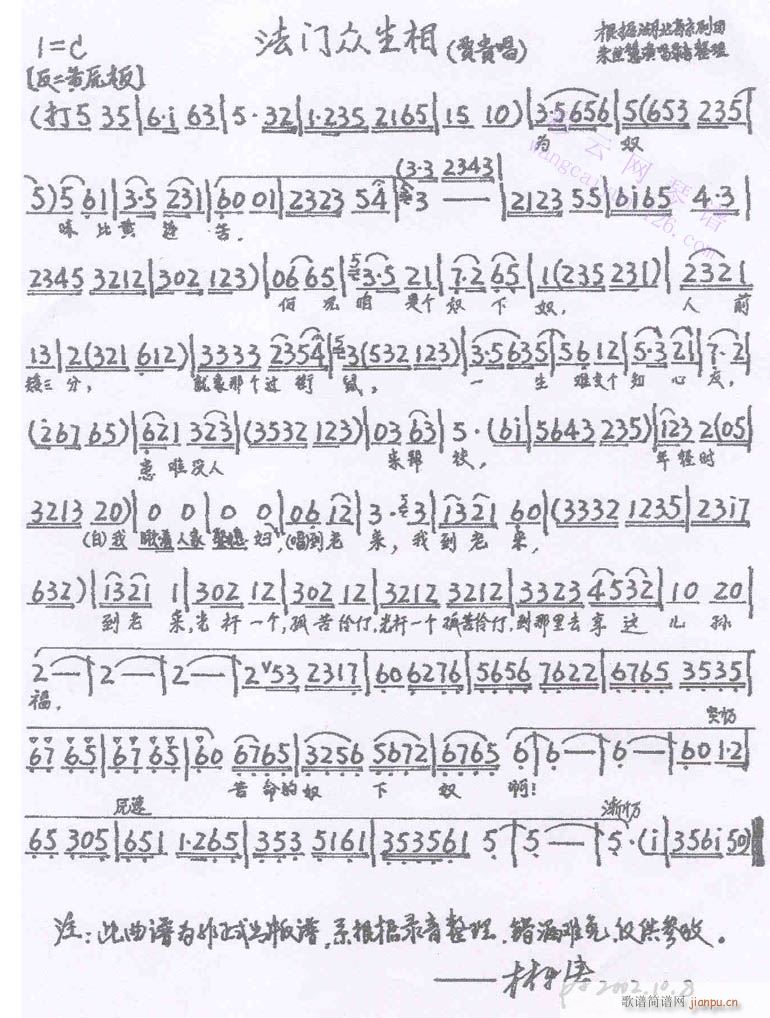 法门众生相(贾贵唱)
根据湖北省京剧团
朱世慧演唱录音整理
1=C
[反二黄原板]
(打5 35|6·i 63|5·32|1·235 2165|15 10)|3·5656|5(653 235|
为 奴
5)5 61|3·5 231|60 01|2323 54|3 — |2123 55|6i65 4·3|
(3·3 2343|
味 比 黄 连 苦,
2345 3212|302 123)|06 65|3·5 21|7·2 65|1(235 231)|2321
何况咱 是个奴下奴, 人前
13|2(321 612)|3333 2354|3(532 123)|3·5635|56 12|5·3 21|7·2
矮三分, 就象那个过街鼠, 一生难交个知心友,
(2676 5)|621 323|(3532 123)|03 63|5·(6i|5643 235)|i23 2(05|
患难没人 来帮扶, 年轻时
3213 20)|0 0|0 0|06 12|3·3|1321 60|(3332 1235|23i7
(白)我 瞅着人家 娶媳妇,(唱)到老来,我到老来,
632)|1321 1|302 12|302 12|3212 3212|3323 4532|10 20|
到老来,光杆一个,孤苦伶仃,光杆一个孤苦伶仃,到那里去享这儿孙
2—|2—|2—|2ᵛ53 2317|60 6276|5656 7622|6765 3535|
福,
突慢
67 65|67 65|60 6765|3256 5672|6765 6|6—|6—|60 1·2|
苦命的奴下奴啊!
原速 渐慢
65 305|651 1·265|353 5161|353561 5|5—|5·(i|356i 50)‖
注:此曲谱为非正式出版谱,系根据录音整理,错漏难免,仅供参改。
2002.10.8
歌谱简谱网 jianpu.cn